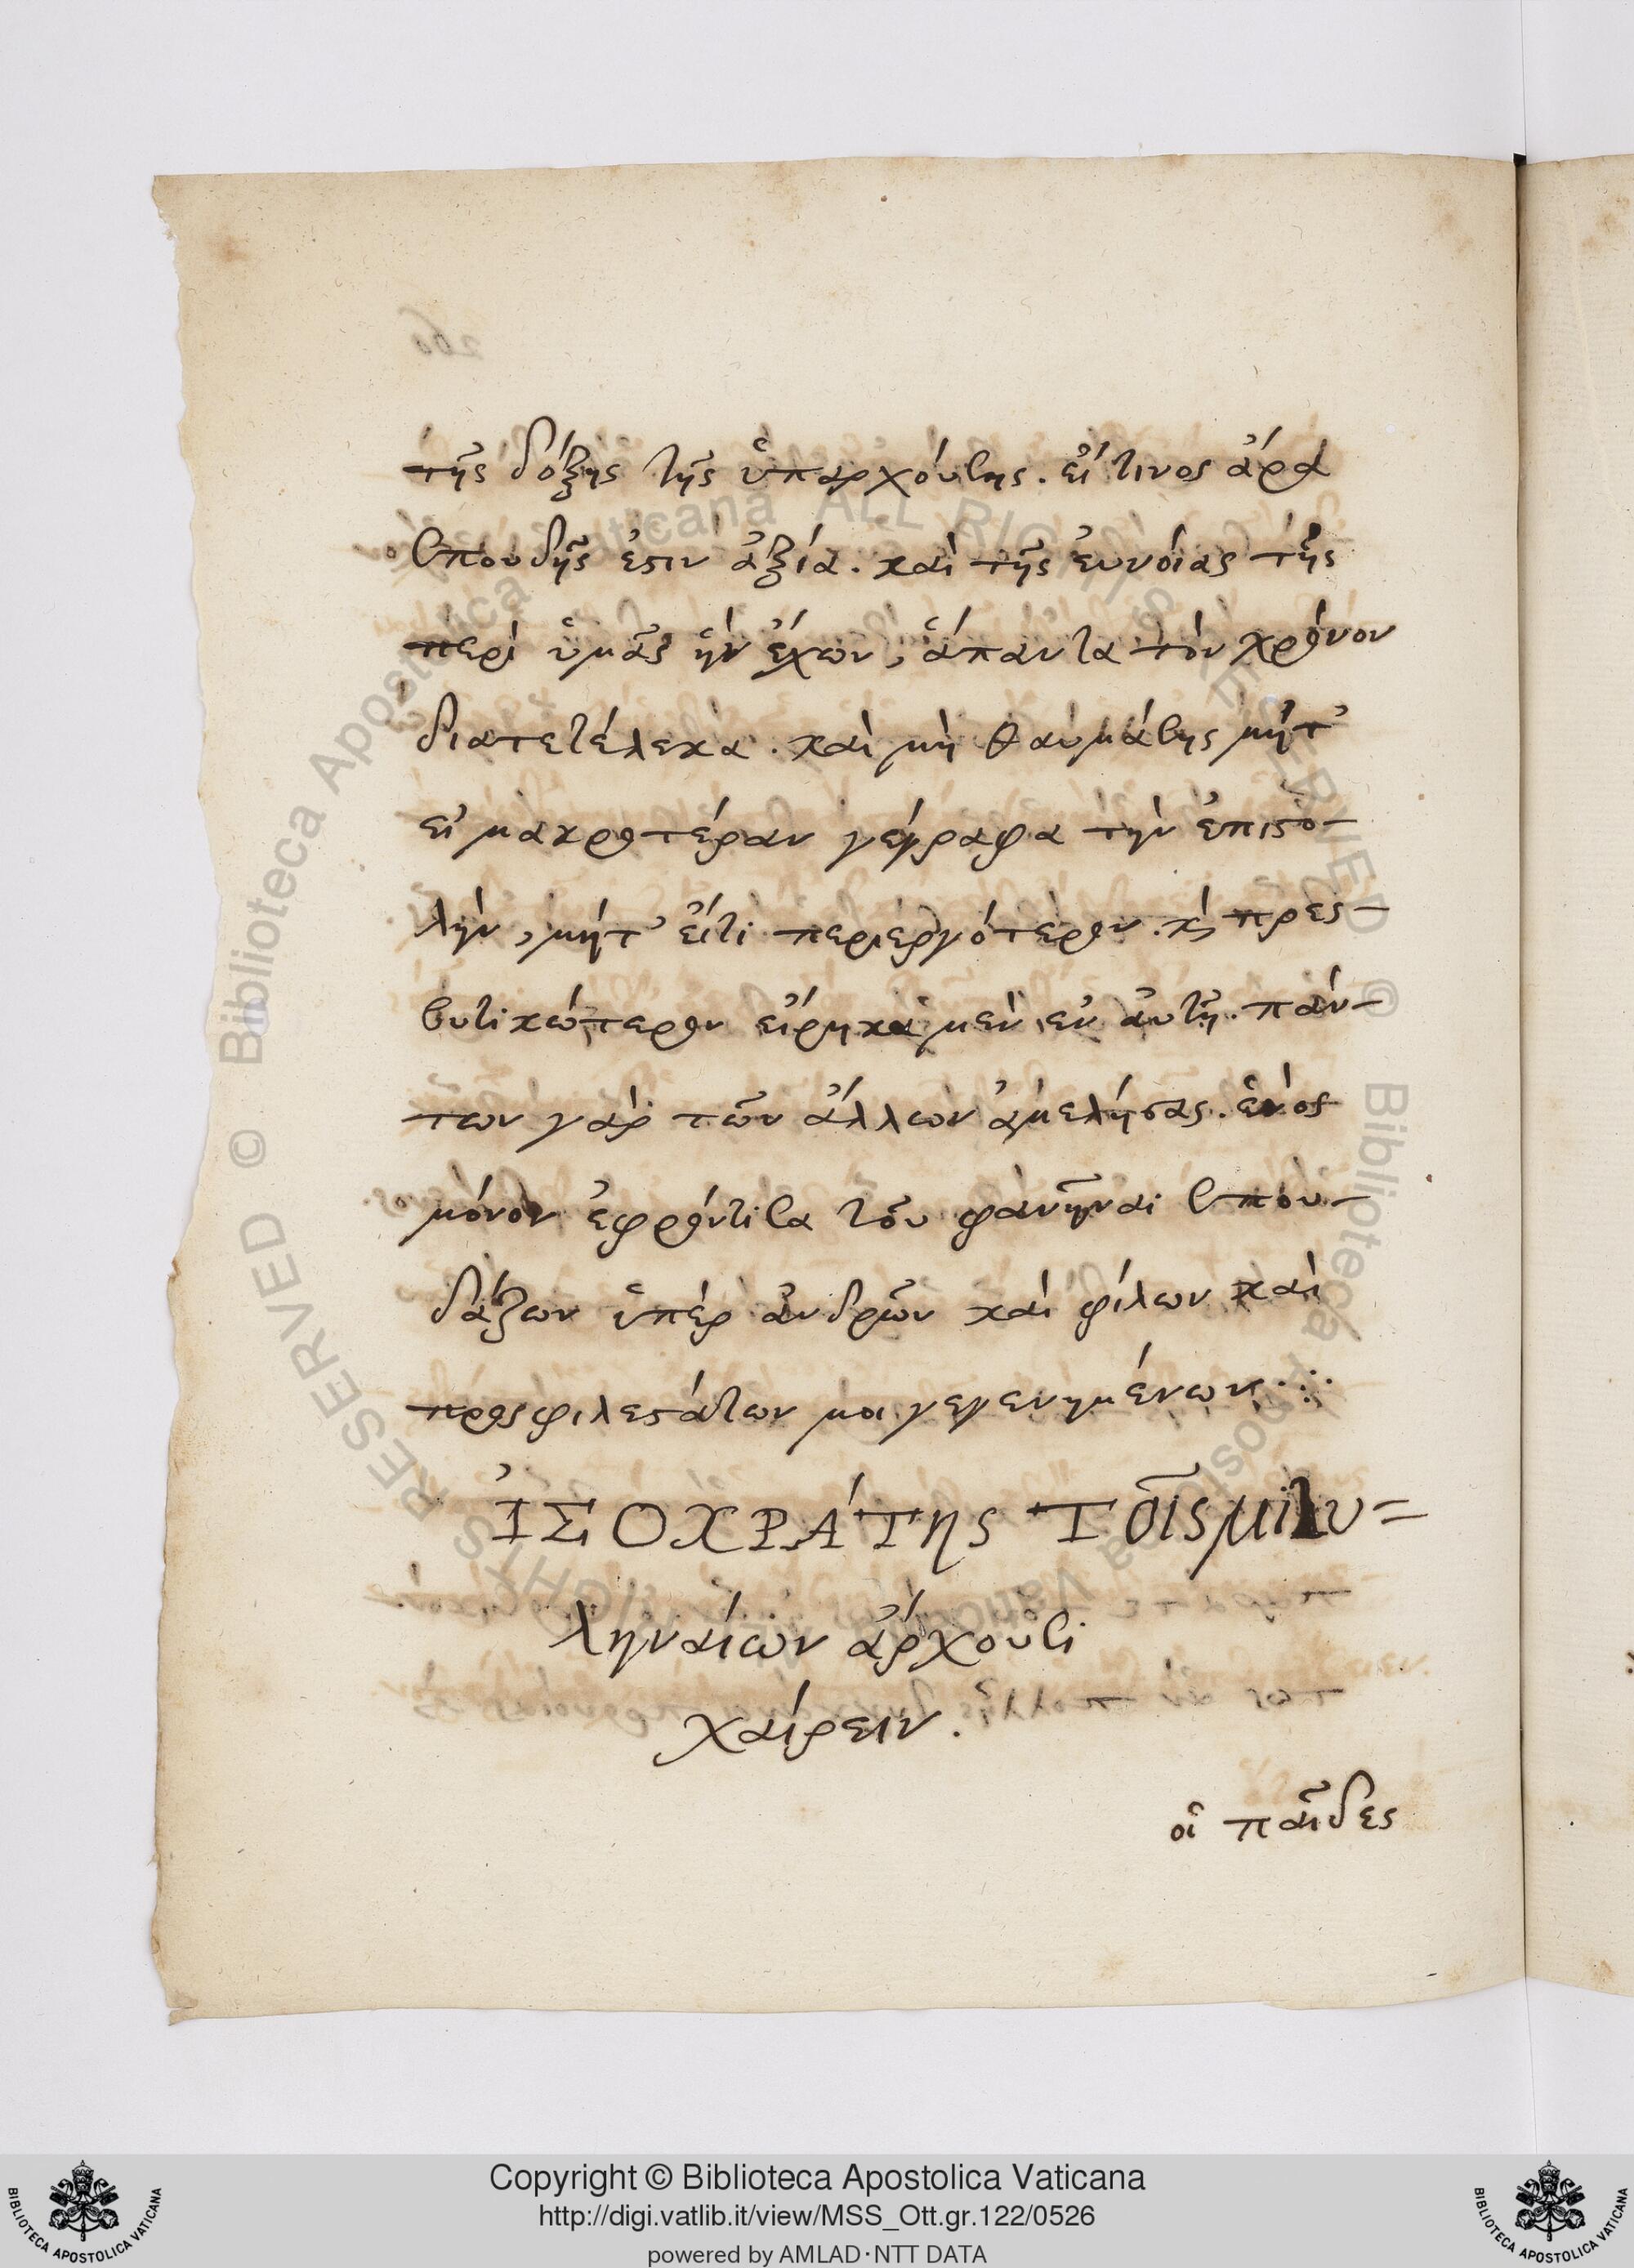 τῆς δόξης τῆς ὑπαρχούσης. εἴ τινος ἄρα
σπουδῆς ἐστιν ἀξία. καὶ τῆς ἐυνοίας τῆς
περὶ ὑμᾶς ἣν ἔχων, ἅπαντα τὸν χρόνον
διατετέλεκα. καὶ μὴ θαυμάσης μήτ᾽
εἰ μακροτέραν γέγραφα τὴν ἐπιστο-
λὴν, μήτ᾽ εἴτι περιεργότερον. κ̀ πρεσ-
βυτικώτερον εἰρήκαμεν ἐν ἀυτῆ. πάν-
των γὰρ τῶν ἄλλων ἀμελήσας. ἑνὸς
μόνον ἐφρόντισα τοῦ φανῆναι σπου-
δάζων ὑπὲρ ἀνδρῶν καὶ φίλων καὶ
προσφιλεστάτων μοι γεγενημένων.:·
ἸΣΟΚΡΆΤης Τοῖς μιλυ=
ληναίων ἄρχουσι
χαίρειν.
οἱ παῖδες
Copyright © Biblioteca Apostolica Vaticana
http://digi.vatlib.it/view/MSS_Ott.gr.122/0526
powered by AMLAD·NTT DATA
BIBLIOTECA APOSTOLICA VATICANA
BIBLIOTECA APOSTOLICA VATICANA